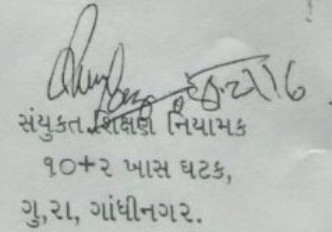 સંયુકત શિક્ષણ નિયામક
૧૦+૨ ખાસ ઘટક,
ગુ,રા, ગાંધીનગર.